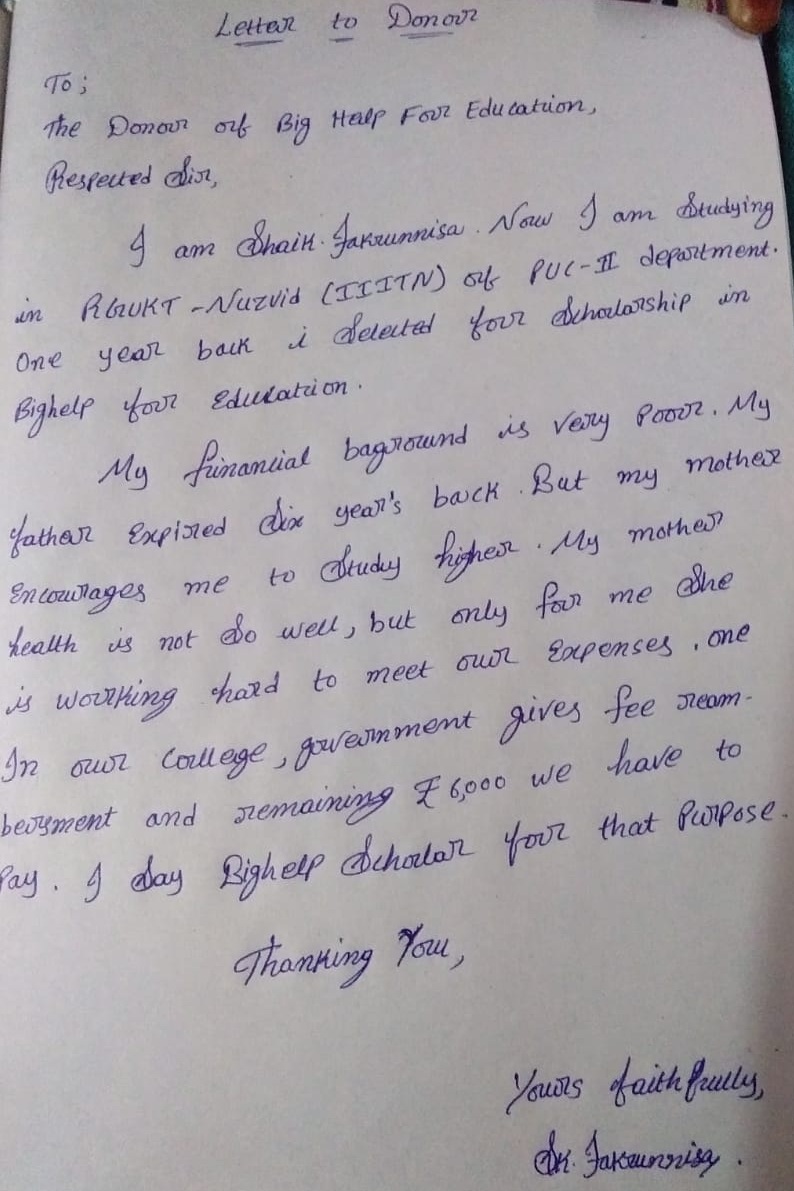 Letter to Donour
To;
The Donour of Big Help Four Education,
Respected Sir,
I am Shaik. Jakrunnisa. Now I am Studying
in RGUKT -Nuzvid (IIITN) of PUC-II department.
One year back i Selected four Scholarship in
Bighelp four Education.
My financial baground is very Poor. My
father Expired Six year's back. But my mother
Encourages me to Study higher. My mother
health is not So well, but only for me She
is working hard to meet our Expenses. one
In our College, government gives fee ream-
bersment and remaining ₹ 6,000 we have to
Pay. I Say Bighelp Scholar four that Purpose.
Thanking You,
Yours faithfully,
Sk. Jakrunnisa.